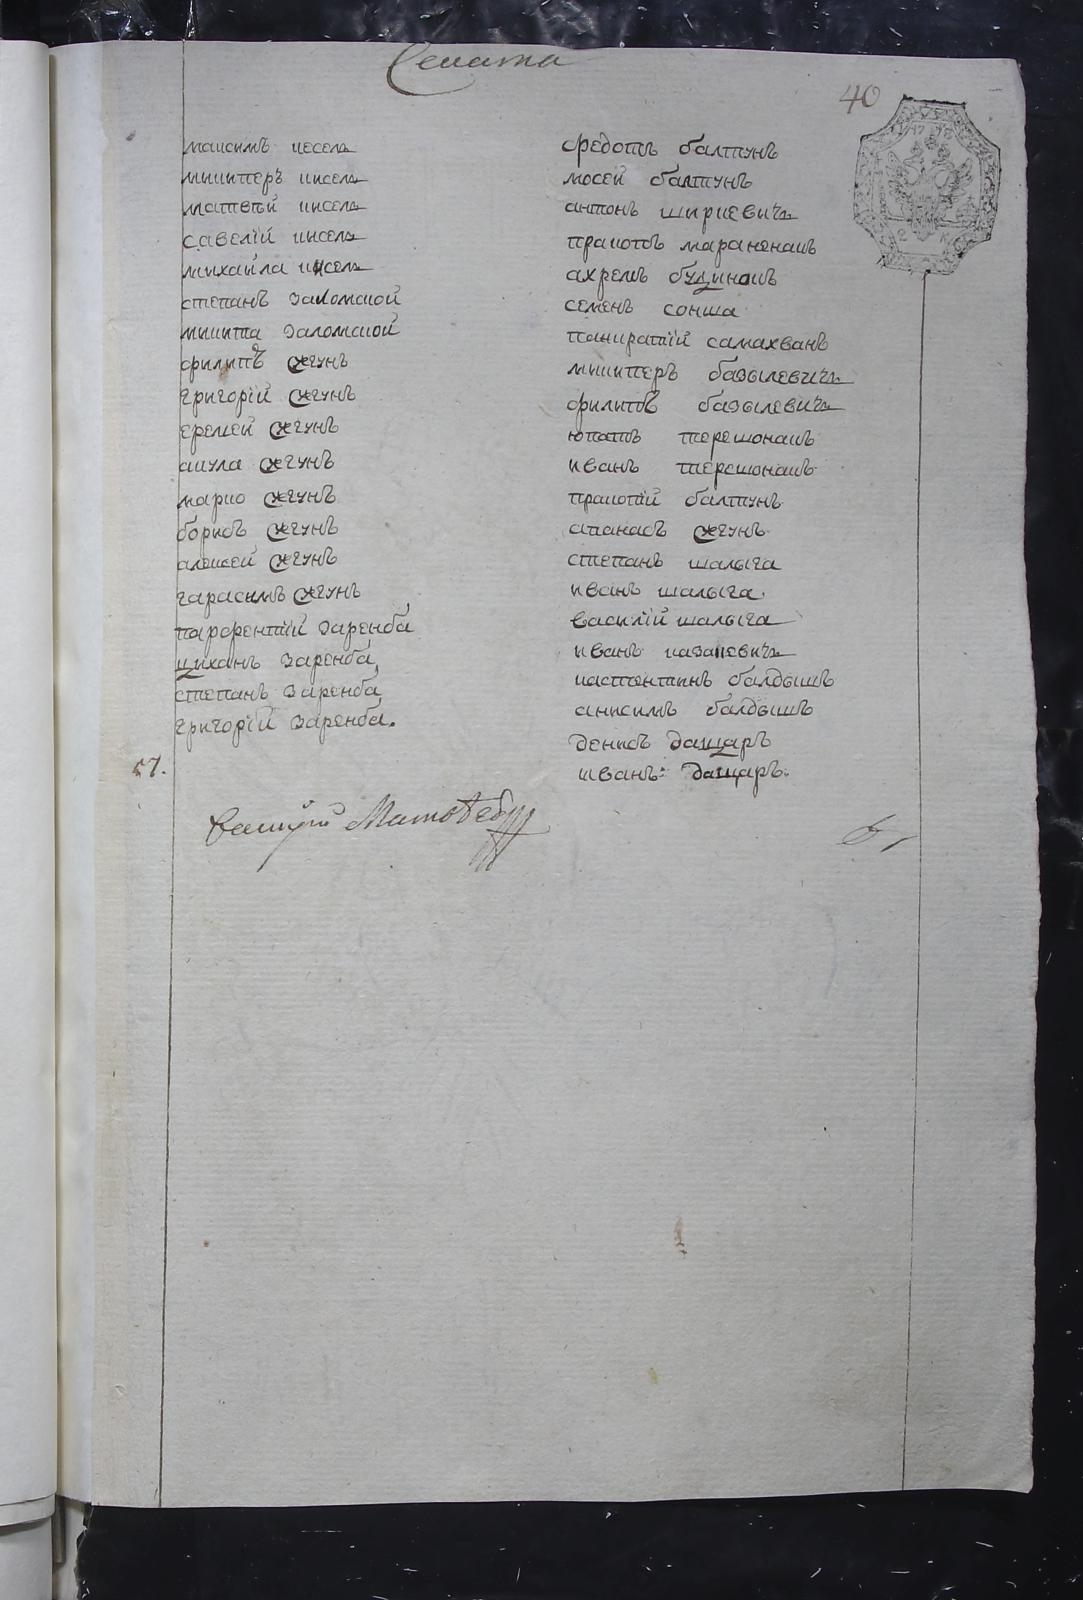 Сената
40
максимъ кисель
никипперъ кисель
матвѣй кисель
савелій кисель
михайла кисель
степанъ заломской
никита заломской
филипъ жгунъ
григорій жгунъ
еремей жгунъ
акула жгунъ
марко жгунъ
борисъ жгунъ
алексей жгунъ
гарасимъ жгунъ
парфентій заренба
цихонъ заренба
степанъ заренба
григорій заренба.
57.
федотъ балтунъ
мосей балтунъ
антонъ ширкевичъ
пракопъ
ахремъ
семенъ сонша
панкратій самахванъ
никипперъ базылевичъ
филипъ базылевичъ
юпатъ терешонакъ
иванъ терешонакъ
пракопій балтунъ
апанасъ жгунъ
степанъ шалыга
иванъ шалыга
василій шалыга
иванъ казакевичъ
кастентинъ балдышъ
анисимъ балдышъ
денисъ дащаръ
иванъ дащаръ